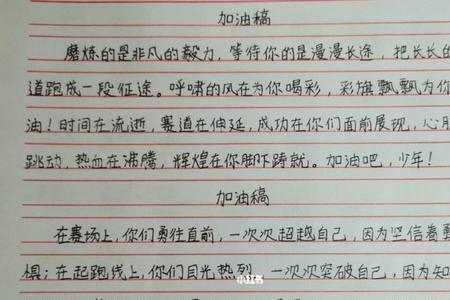 加油稿
磨炼的是非凡的毅力，等待你的是漫漫长途，把长长的
道跑成一段征途。呼啸的风在为你喝彩，彩旗飘飘为你
油！时间在流逝，赛道在伸延，成功在你们面前展现，心脏
跳动，热血在沸腾，辉煌在你脚下铸就。加油吧，少年！
加油稿
在赛场上，你们勇往直前，一次次超越自己，因为坚信着勤
惧；在起跑线上，你们目光热烈，一次次突破自己，因为知
小红书